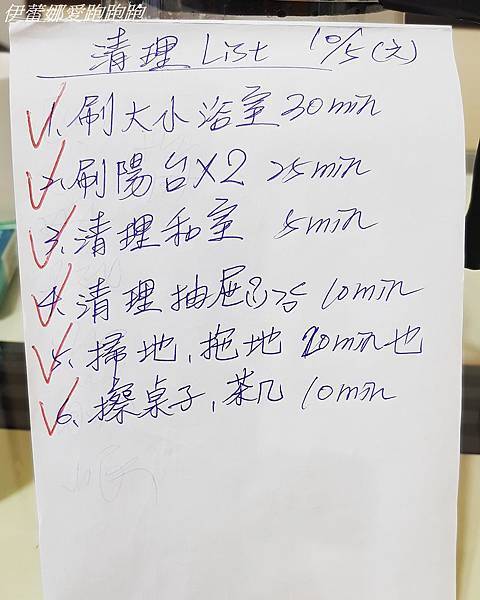 伊蕾娜愛跑跑跑
清理 List 10/5 (六)
1. 刷大小浴室 30min
2. 刷陽台X2 25min
3. 清理和室 5min
4. 清理抽屜 10min
5. 掃地, 拖地 20min也
6. 擦桌子, 茶几 10min